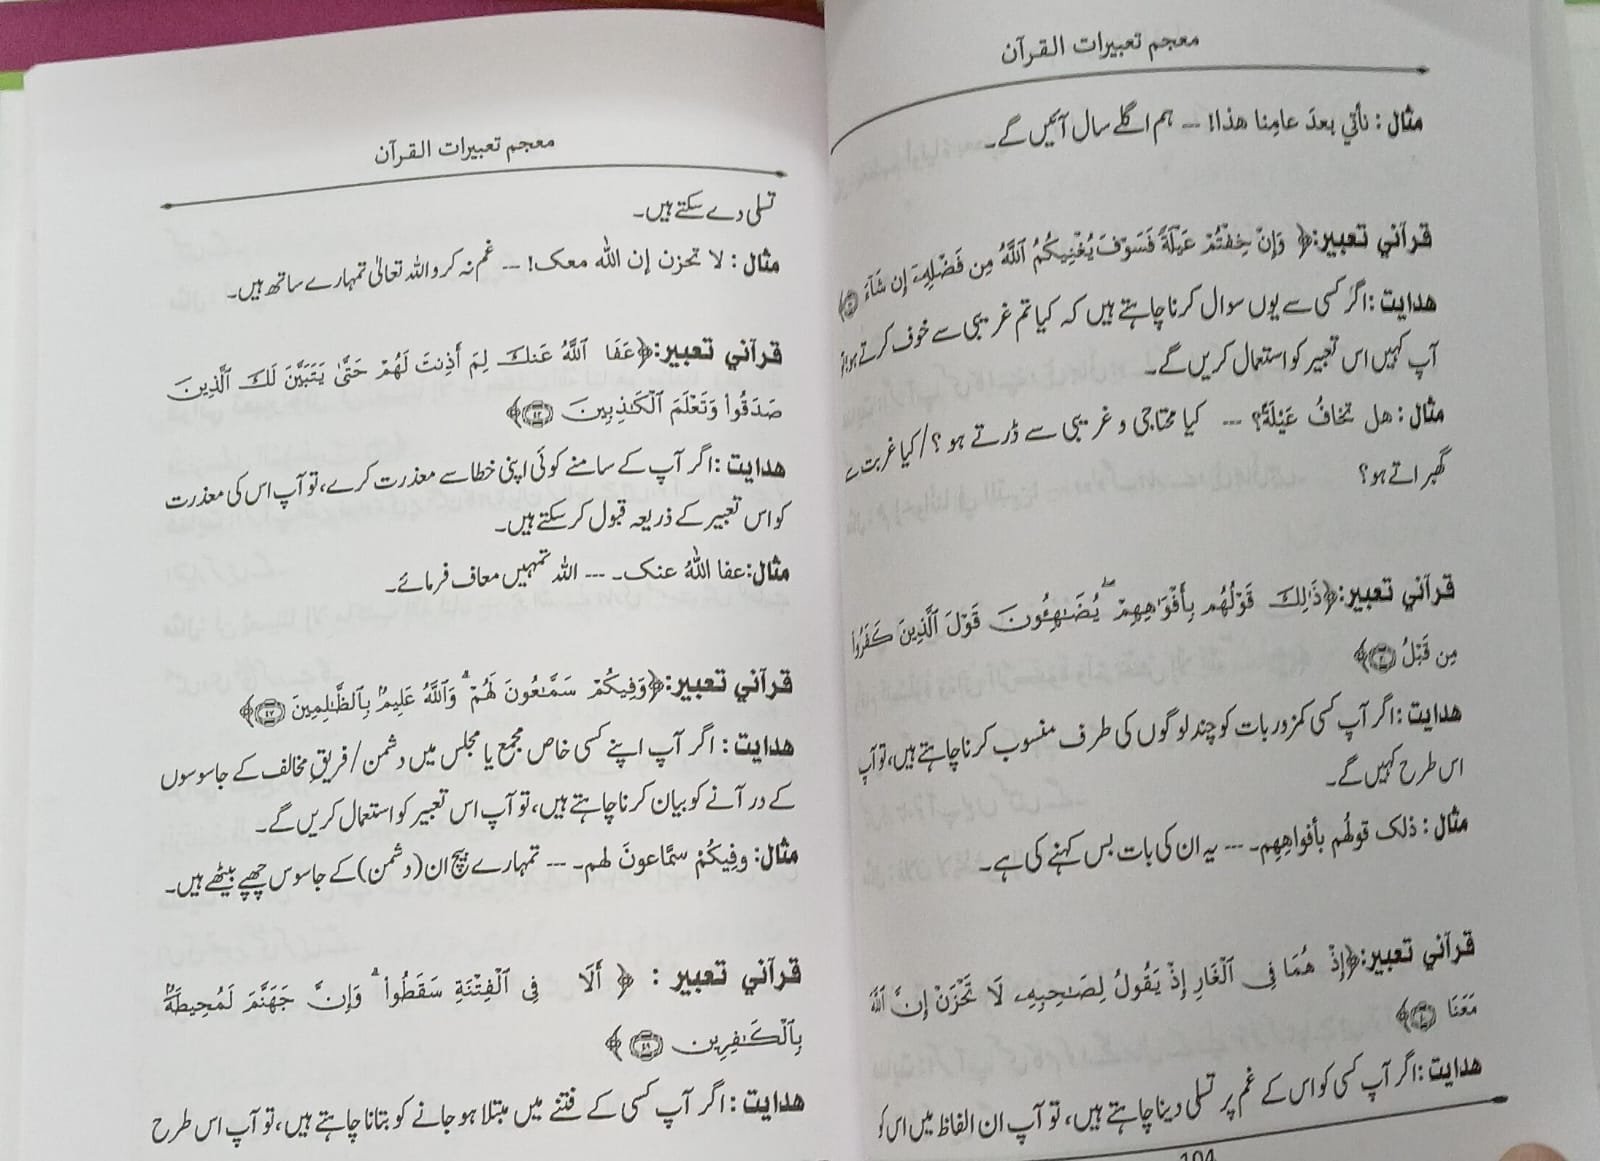 معجم تعبیرات القرآن
مثال: نأتي بعدَ عامِنا هذا! --- ہم اگلے سال آئیں گے۔
قرآني تعبیر:﴿ وَإِنْ خِفْتُمْ عَيْلَةً فَسَوْفَ يُغْنِيكُمُ ٱللَّهُ مِن فَضْلِهِۦٓ إِن شَآءَ ﴾
هدایت: اگر کسی سے یوں سوال کرنا چاہتے ہیں کہ کیا تم غریبی سے خوف کرتے ہو، تو
آپ کہیں اس تعبیر کو استعمال کریں گے۔
مثال: هل تخافُ عَيْلَةً؟ --- کیا محتاجی و غریبی سے ڈرتے ہو؟/کیا غربت سے
گھبراتے ہو؟
قرآني تعبیر:﴿ذَٰلِكَ قَوْلُهُم بِأَفْوَٰهِهِمْ ۖ يُضَـٰهِـُٔونَ قَوْلَ ٱلَّذِينَ كَفَرُوا۟
مِن قَبْلُ ﴿٣٠﴾﴾
هدایت: اگر آپ کسی کمزور بات کو چند لوگوں کی طرف منسوب کرنا چاہتے ہیں، تو آپ
اس طرح کہیں گے۔
مثال: ذلک قولُهم بأفواهِهِم۔ --- یہ ان کی بات بس کہنے کی ہے۔
قرآني تعبیر:﴿إِذْ هُمَا فِى ٱلْغَارِ إِذْ يَقُولُ لِصَـٰحِبِهِۦ لَا تَحْزَنْ إِنَّ ٱللَّهَ
مَعَنَا ﴿٤٠﴾﴾
هدایت: اگر آپ کسی کو اس کے غم پر تسلی دینا چاہتے ہیں، تو آپ ان الفاظ میں اس کو
104
معجم تعبیرات القرآن
تسلی دے سکتے ہیں۔
مثال: لا تحزن إن الله معک! --- غم نہ کرو اللہ تعالیٰ تمہارے ساتھ ہیں۔
قرآني تعبیر:﴿عَفَا ٱللَّهُ عَنكَ لِمَ أَذِنتَ لَهُمْ حَتَّىٰ يَتَبَيَّنَ لَكَ ٱلَّذِينَ
صَدَقُوا۟ وَتَعْلَمَ ٱلْكَـٰذِبِينَ ﴿٤٣﴾﴾
هدایت: اگر آپ کے سامنے کوئی اپنی خطا سے معذرت کرے، تو آپ اس کی معذرت
کو اس تعبیر کے ذریعہ قبول کر سکتے ہیں۔
مثال: عفا اللهُ عنک۔ --- اللہ تمہیں معاف فرمائے۔
قرآني تعبیر:﴿وَفِيكُمْ سَمَّـٰعُونَ لَهُمْ ۗ وَٱللَّهُ عَلِيمٌۢ بِٱلظَّـٰلِمِينَ ﴿٤٧﴾﴾
هدایت: اگر آپ اپنے کسی خاص مجمع یا مجلس میں دشمن/فریقِ مخالف کے جاسوسوں
کے در آنے کو بیان کرنا چاہتے ہیں، تو آپ اس تعبیر کو استعمال کریں گے۔
مثال: وفِيكُمْ سمَّاعونَ لهم۔ --- تمہارے بیچ ان (دشمن) کے جاسوس چھپے بیٹھے ہیں۔
قرآني تعبیر: ﴿ أَلَا فِى ٱلْفِتْنَةِ سَقَطُوا۟ ۗ وَإِنَّ جَهَنَّمَ لَمُحِيطَةٌۢ
بِٱلْكَـٰفِرِينَ ﴿٤٩﴾﴾
هدایت: اگر آپ کسی کے فتنے میں مبتلا ہو جانے کو بتانا چاہتے ہیں، تو آپ اس طرح